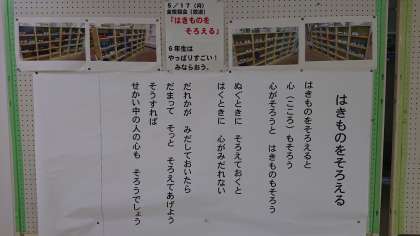 5/17(月)
全校朝会(放送)
『はきものを
そろえる』
6年生は
やっぱりすごい!
みならおう。
はきものをそろえる
はきものをそろえると
心(こころ)もそろう
心がそろうと はきものもそろう
ぬぐときに そろえておくと
はくときに 心がみだれない
だれかが みだしておいたら
だまって そっと そろえてあげよう
そうすれば
せかい中の人の心も そろうでしょう